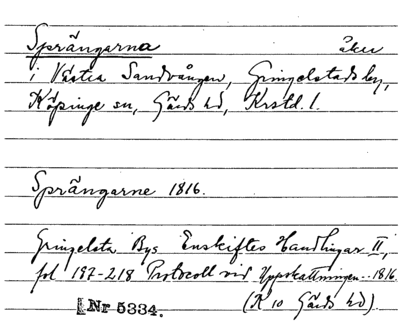 Sprängarna åker
i Västra Sandvången, Gringelstads by,
Köpinge sn, Gärds hd, Krstd. l.
Sprängarne 1816.
Gringelsta Bys Enskiftes Handlingar II,
fol 197-218 Protocoll vid Uppskattningen.. 1816.
(K 10 Gärds hd)
Nr 5334.